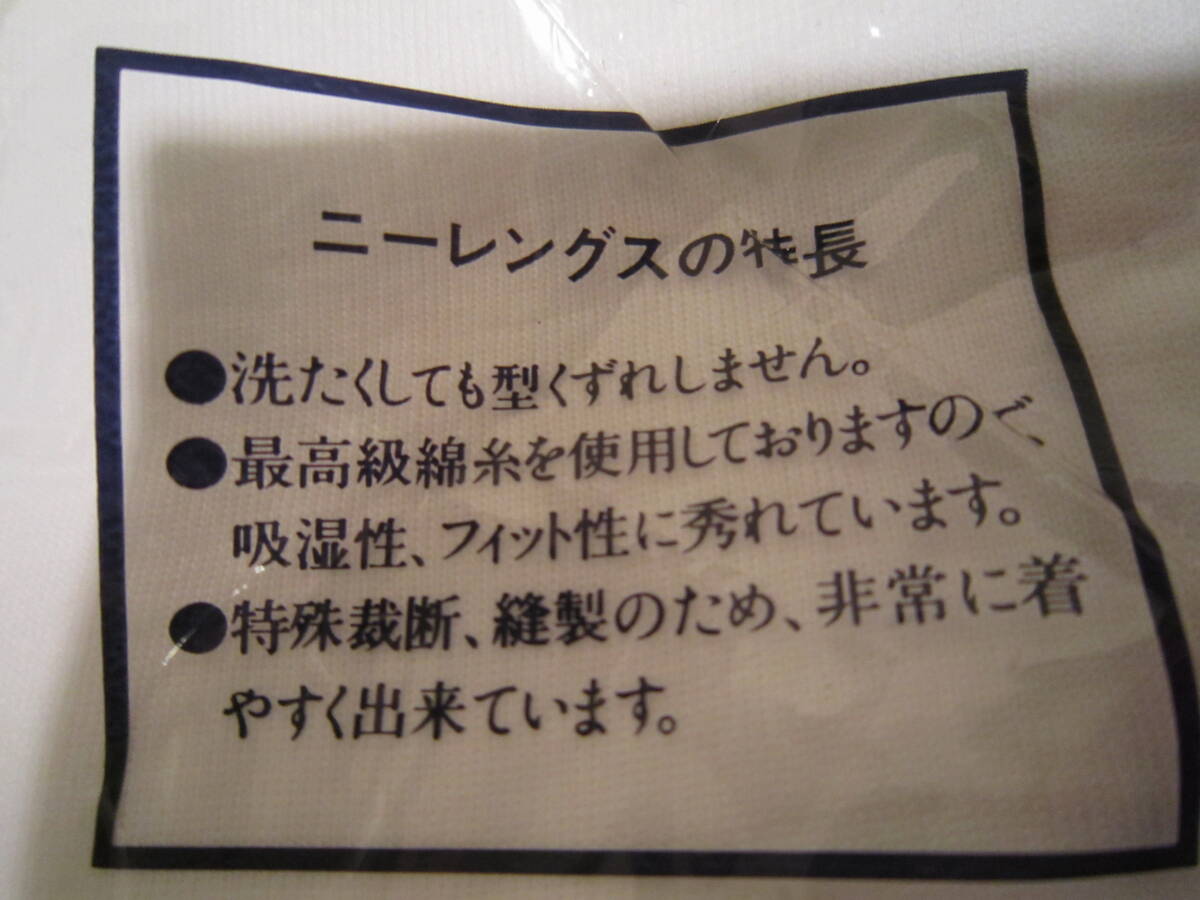 ニーレングスの特長
●洗たくしても型くずれしません。
●最高級綿糸を使用しておりますので、
吸湿性、フィット性に秀れています。
●特殊裁断、縫製のため、非常に着
やすく出来ています。